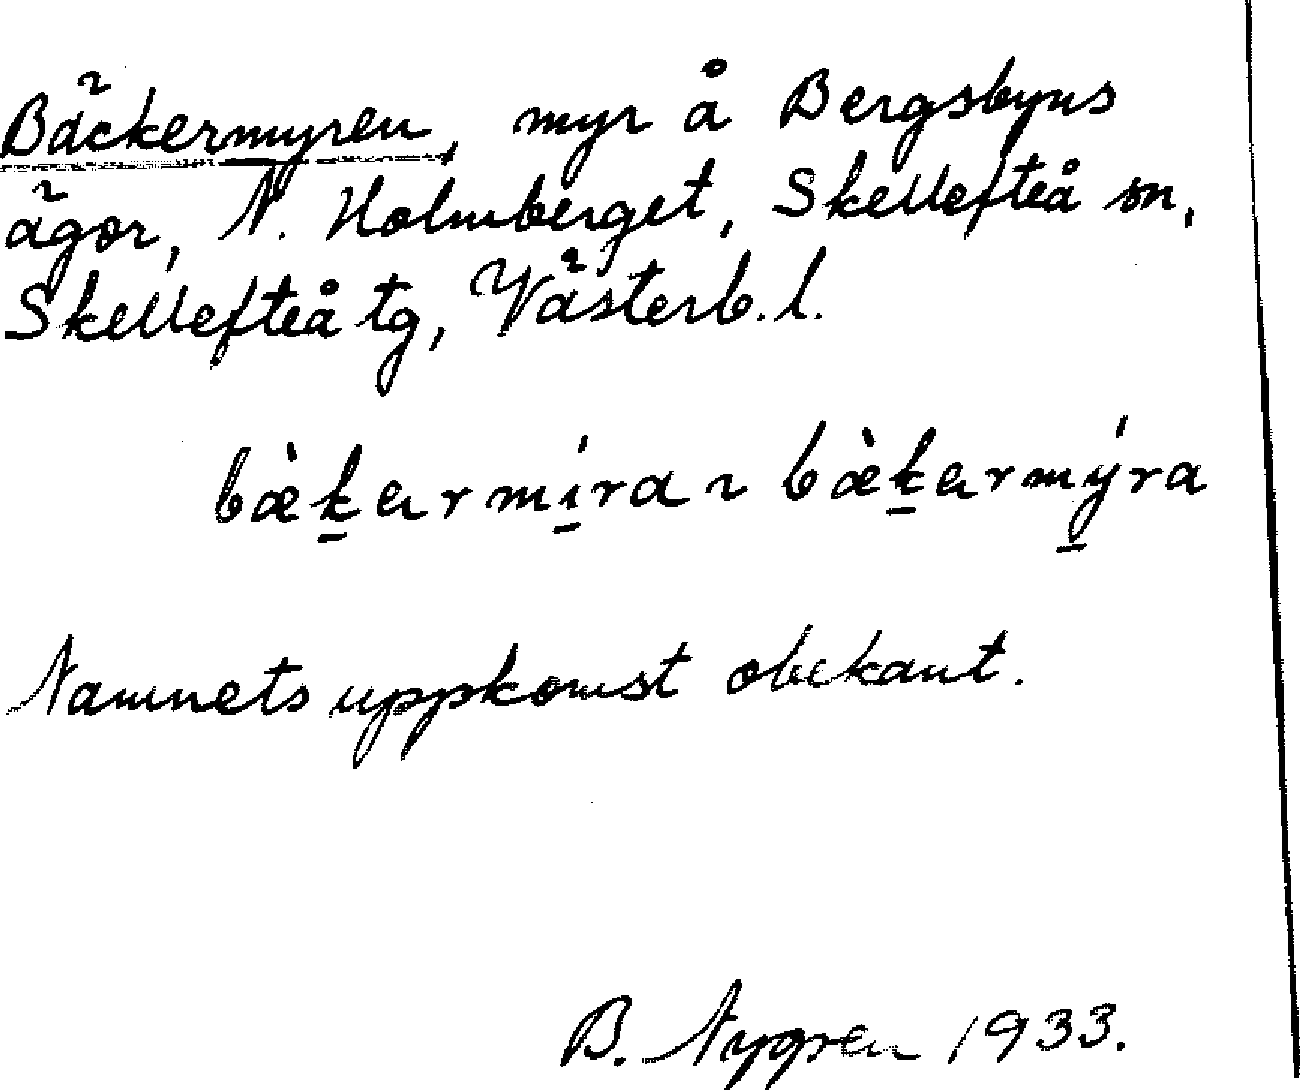 Bäckermyren, myr å Bergsbyns
ägor, N. Holmberget, Skellefteå sn,
Skellefteå tg, Västerb. l.
bæ̀k̲ermí̲ra ~ bæ̀k̲ermý̲ra
Namnets uppkomst obekant.
B. Nygren 1933.